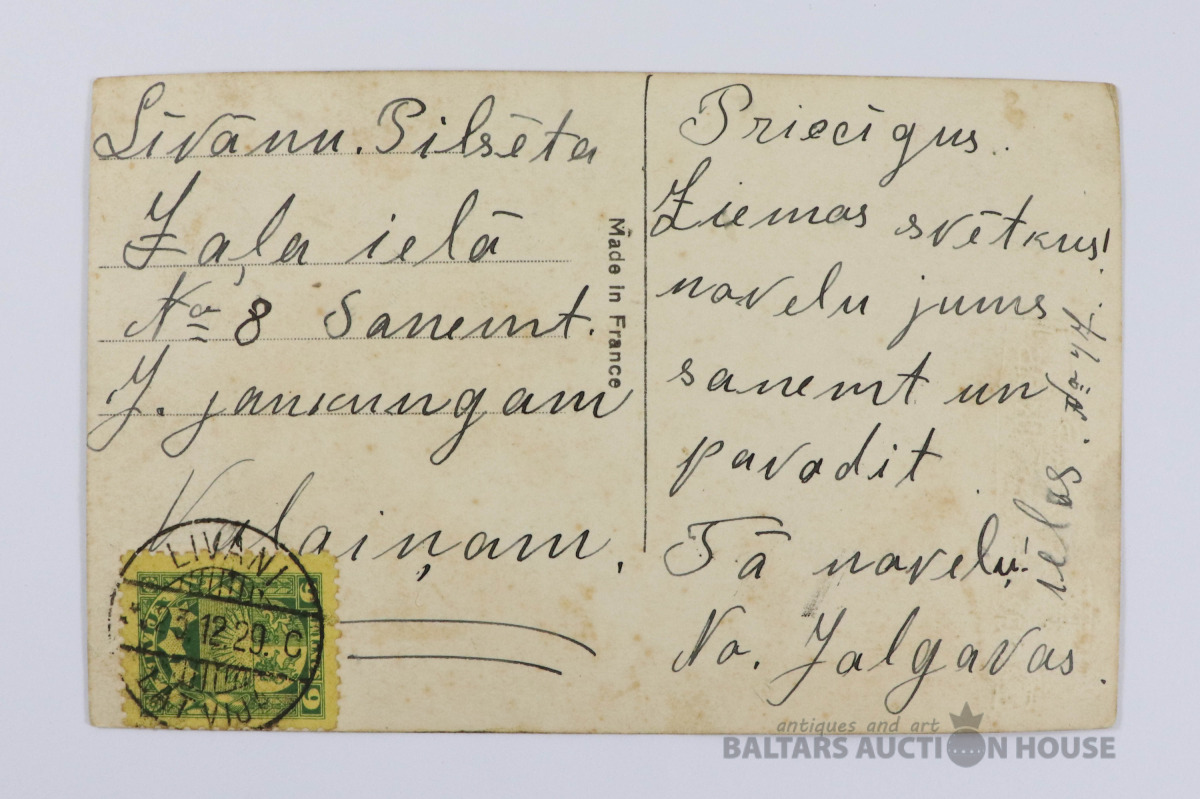 Līvānu. Pilsēta
Zaļa ielā
No 8 Sanemt.
J. jankungam
Kalaiņam.
Made in France
Priecīgus.
Ziemas svētkus!
novelu jums
sanemt un
pavadit
Tā novelu!
No. Jalgavas
ielas. No 44.
LIVANI
12.29. C
LATVIJA
6
antiques and art
BALTARS AUCTION HOUSE